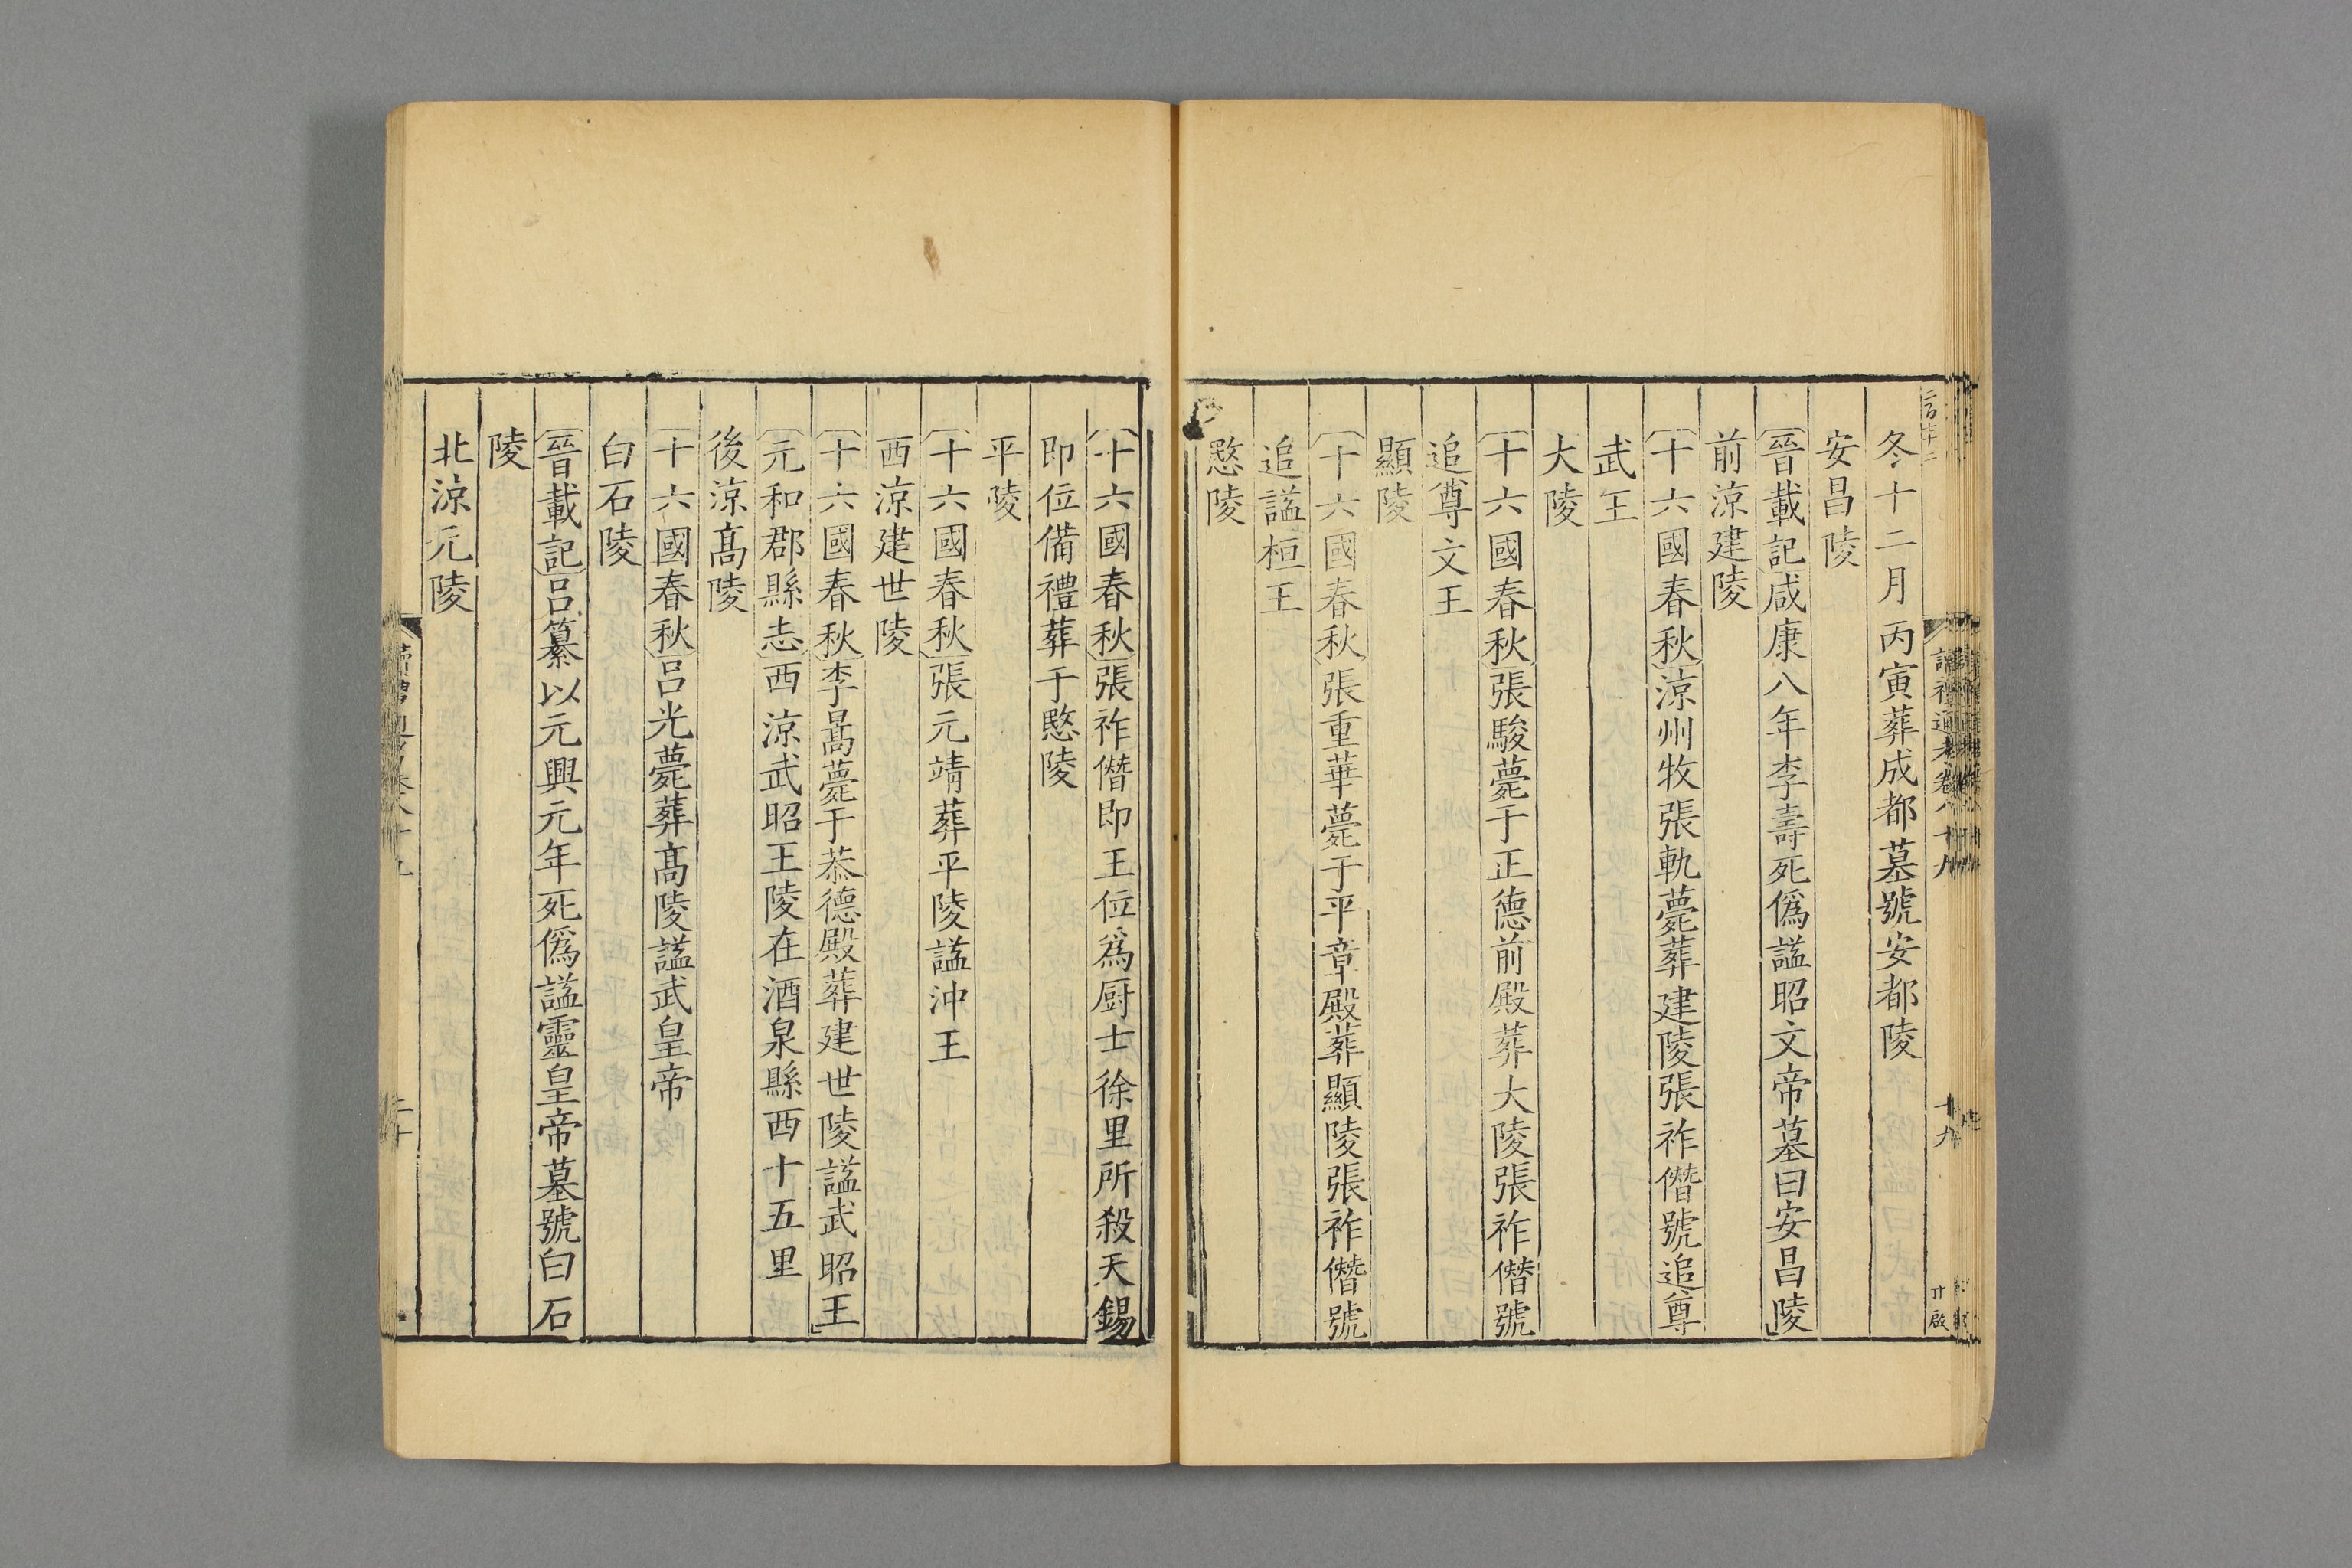 冬十二月丙寅葬成都墓號安都陵
安昌陵
晉載記咸康八年李壽死僞諡昭文帝墓曰安昌陵
前涼建陵
十六國春秋涼州牧張軌薨葬建陵張祚僭號追尊
武王
大陵
十六國春秋張駿薨于正德前殿葬大陵張祚僭號
追尊文王
顯陵
十六國春秋張重華薨于平章殿葬顯陵張祚僭號
追諡桓王
愍陵
十六國春秋張祚僭即王位爲厨士徐里所殺天錫
即位備禮葬于愍陵
平陵
十六國春秋張元靖葬平陵諡沖王
西涼建世陵
十六國春秋李暠薨于恭德殿葬建世陵諡武昭王
元和郡縣志西涼武昭王陵在酒泉縣西十五里
後涼髙陵
十六國春秋呂光薨葬髙陵諡武皇帝
白石陵
晉載記呂纂以元興元年死僞諡靈皇帝墓號白石
陵
北涼元陵
讀禮通考卷八十九
十九